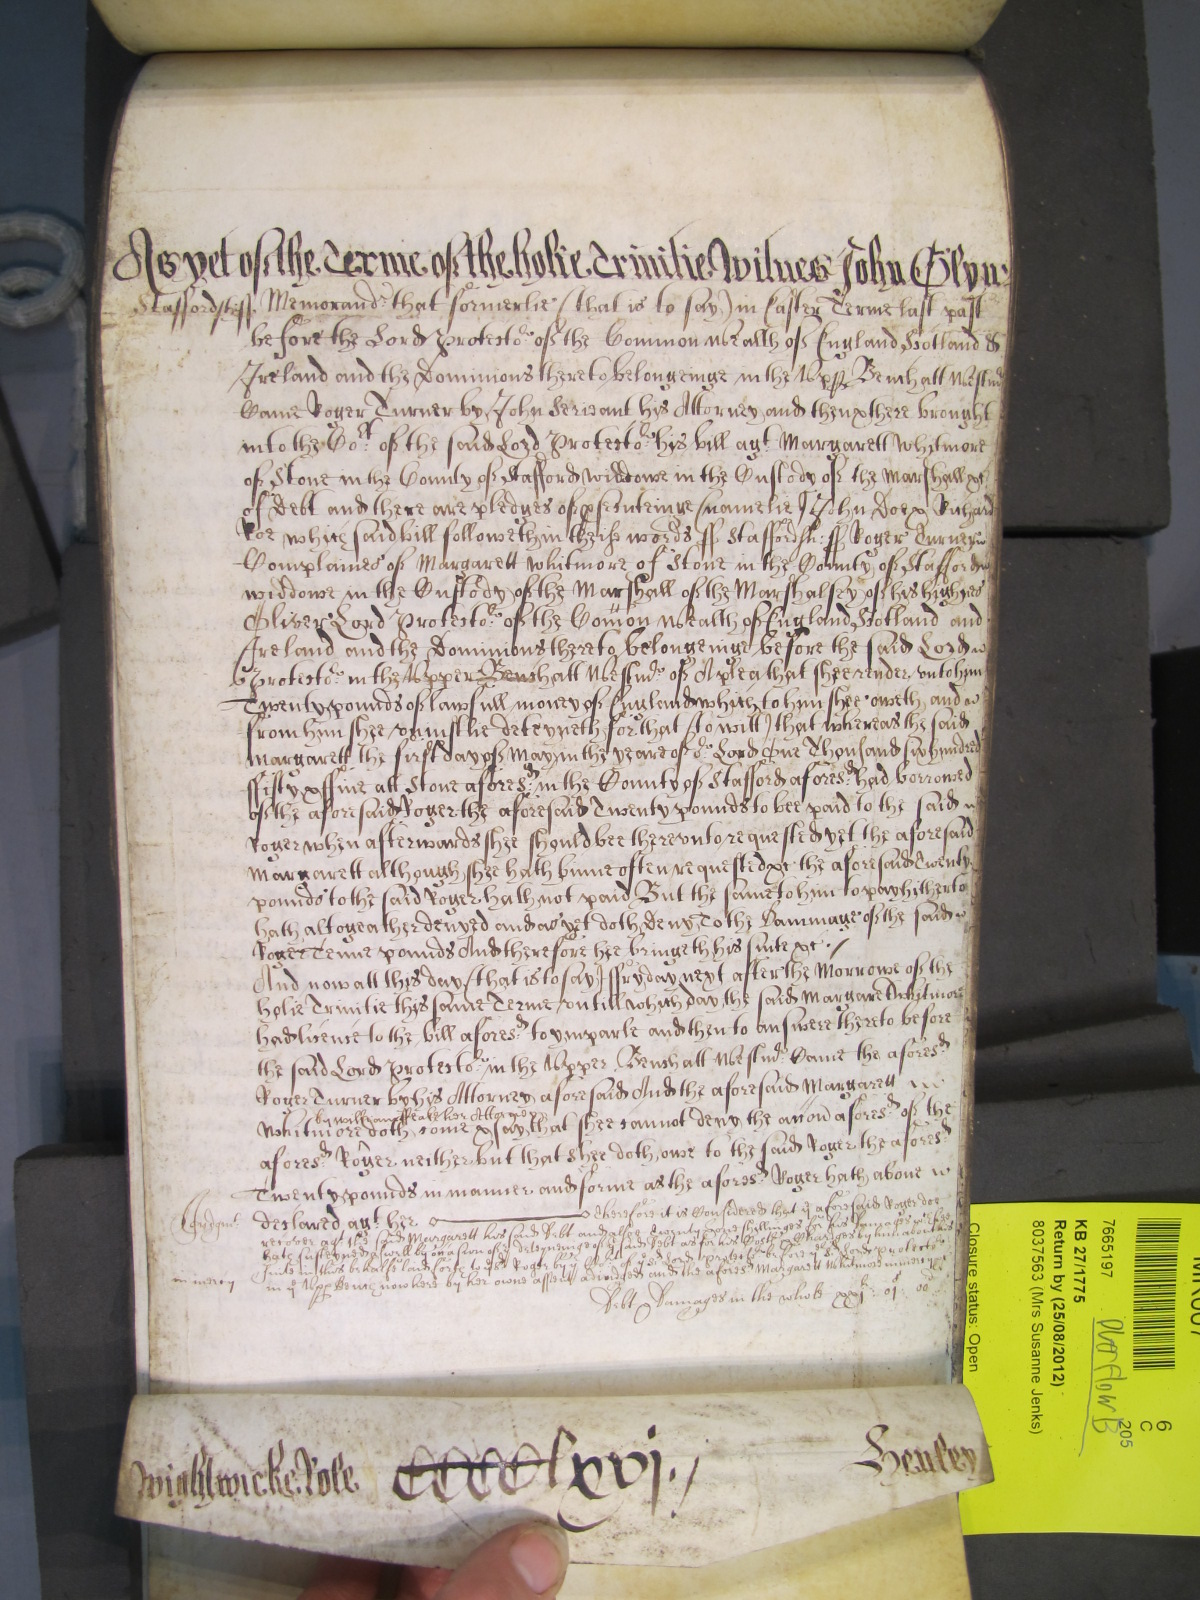 As yet of the Terme of the holie Trinitie Witnes John Glynn
Staffordsh ss Memorand: that formerlie (that is to say) in Easter Terme last past
before the Lord Protector of the Common wealth of England Scotland &
Ireland and the Dominions thereto belongeinge in the Upp Bench att Westmr
Came Roger Turner by John Servant his Attorney and then & there brought
into the Cort of the said Lord Protector his bill agt Margarett Whitmore
of Stone in the County of Stafford widdowe in the Custody of the Marshall &c
of Debt and there are pledges of psenteinge (namelie) John Doe & Richard
Roe which said bill followeth in theis words ss Staffordsh: ss Roger Turner
Complaines of Margarett Whitmore of Stone in the County of Stafford
widdowe in the Custody of the Marshall of the Marshalsey of his highnes
Oliver Lord Protector of the Comon wealth of England Scotland and
Ireland and the Dominions thereto belongeinge before the said Lord
Protector in the Upper Bench att Westmr of A plea that shee render unto him
Twenty pounds of lawfull money of England which to him shee oweth and
from him shee uniustlie deteyneth for that (to witt) that whereas the said
Margarett the first day of May in the yeare of or Lord One Thousand six hundred
fifty & ffive att Stone aforesd in the County of Stafford aforesd had borrowed
of the aforesaid Roger the aforesaid Twenty pounds to bee paid to the said
Roger when afterwards shee should bee thereunto requested yet the aforesaid
Margarett although shee hath binne often requested &c the aforesaid Twenty
pounds to the said Roger hath not paid But the same to him to pay hitherto
hath altogeather denyed and as yet doth deny To the Dammage of the said
Roger Tenne pounds And therefore hee bringeth his suite &c
And now att this day (that is to say) ffryday next after the Morrowe of the
holie Trinitie this same Terme untill which day the said Margarett Whitmore
had licence to the bill aforesd to imparle and then to answere thereto before
the said Lord Protector in the Upper Bench att Westmr Came the aforesd
Roger Turner by his Attorney aforesaid And the aforesaid Margarett
by William ffeake her Attorney
Whitmore doth come & say that shee cannot deny the accon aforesd of the
aforesd Roger neither but that shee doth owe to the said Roger the aforesd
Twenty pounds in manner and forme as the aforesd Roger hath above
declared agt her Therefore it is Considered that ye aforesaid Roger doe
recover agt the said Margarett his said Debt and alsoe twenty one shillinges for his Damages which he
hath susteyned aswell by occasion of ye deteyneinge of ye said Debt as for his Costs & Charges by him about his
suite in this behalfe laid forth to ye said Roger by ye Cort of ye said Lord Protector before ye said Lord Protector
in ye Upp Bench now here by her owne assent adiudged and the aforesd Margarett Whitmore in mercy
in mercy
Debt & Damages in the whole xxjli: 0js: 00d
Wightwicke Role CCCClxxvj.
Henley
7665197
KB 27/1775
Return by (25/08/2012)
8037563 (Mrs Susanne Jenks)
Closure status: Open
Overflow B
205
C
6